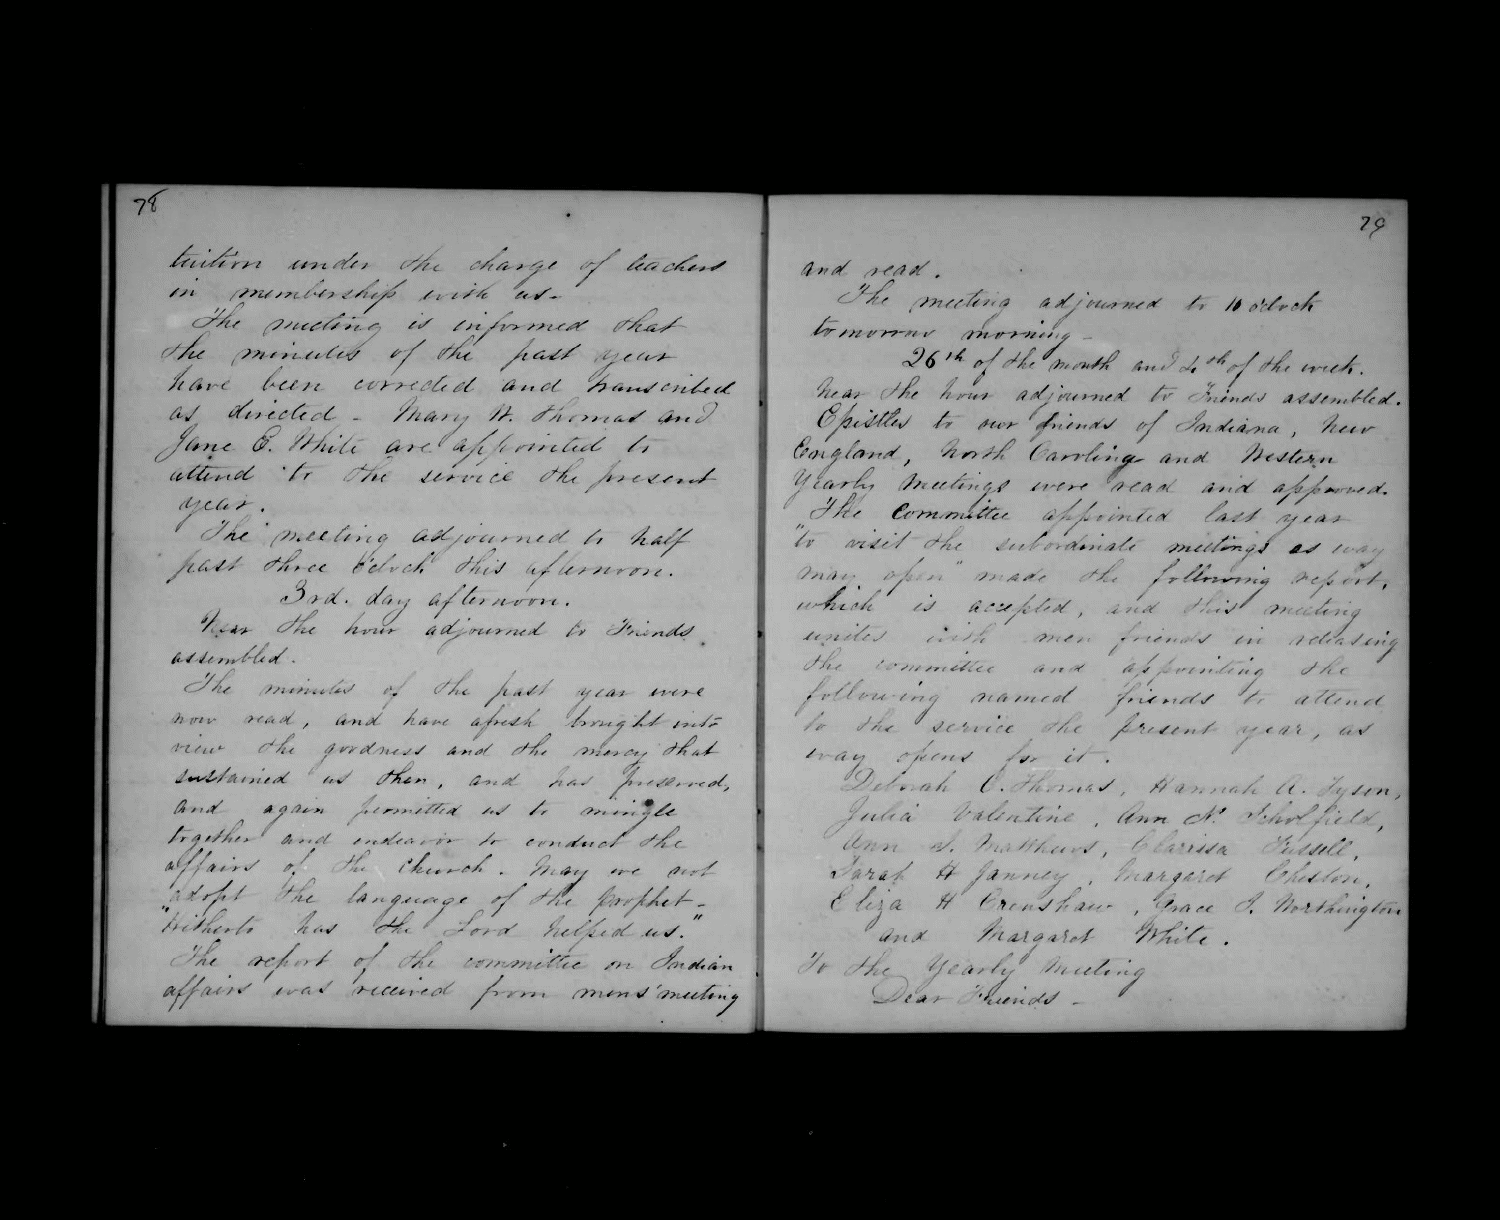 78
tuition under the charge of teachers
in membership with us -
The meeting is informed that
the minutes of the past year
have been corrected and transcribed
as directed - Mary W. Thomas and
Jane C. White are appointed to
attend to the service the present
year.
The meeting adjourned to half
past three O'clock this afternoon.
3rd. day afternoon.
Near the hour adjourned to Friends
assembled.
The minutes of the past year were
now read, and have afresh brought into
view the goodness and the mercy that
sustained us then, and has preserved,
and again permitted us to mingle
together and endeavor to conduct the
affairs of the church. May we not
adopt the language of the prophet -
"Hitherto has the Lord helped us."
The report of the committee on Indian
affairs was received from mens' meeting
79
and read.
The meeting adjourned to 10 o'clock
tomorrow morning -
26th of the month and 4th of the week.
Near the hour adjourned to Friends assembled.
Epistles to our friends of Indiana, New
England, North Carolina and Western
Yearly Meetings were read and approved.
The Committee appointed last year
"to visit the subordinate meetings as way
may open" made the following report,
which is accepted, and this meeting
unites with men friends in releasing
the committee and appointing the
following named friends to attend
to the service the present year, as
way opens for it.
Deborah C. Thomas, Hannah A. Tyson,
Julia Valentine, Ann N. Scholfield,
Ann S. Matthews, Clarissa Fussell,
Sarah H Janney, Margaret Cheston,
Eliza H Crenshaw, Grace S. Worthington
and Margaret White.
To the Yearly Meeting
Dear Friends -